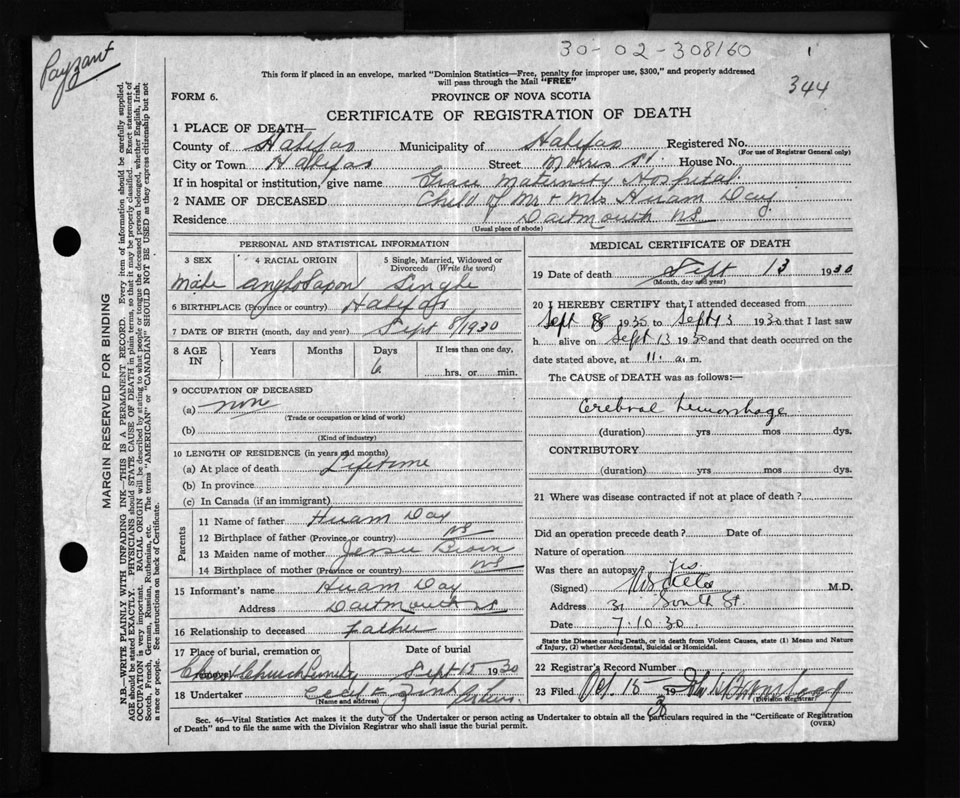 30-02-308160
1
Payzant
344
This form if placed in an envelope, marked "Dominion Statistics—Free, penalty for improper use, $300," and properly addressed
will pass through the Mail "FREE"
FORM 6.
PROVINCE OF NOVA SCOTIA
CERTIFICATE OF REGISTRATION OF DEATH
1 PLACE OF DEATH—
County of Halifax Municipality of Halifax Registered No.
(For use of Registrar General only)
City or Town Halifax Street Morris St. House No.
If in hospital or institution, give name Grace Maternity Hospital
2 NAME OF DECEASED Child of Mr + Mrs Hiram Day
Residence Dartmouth NS
(Usual place of abode)
PERSONAL AND STATISTICAL INFORMATION
3 SEX
4 RACIAL ORIGIN
5 Single, Married, Widowed or
Divorced (Write the word)
Male Anglo Saxon Single
6 BIRTHPLACE (Province or country) Halifax
7 DATE OF BIRTH (month, day and year) Sept 8/1930
8 AGE IN
Years Months Days If less than one day,
6 hrs. or min.
9 OCCUPATION OF DECEASED
(a) non
(Trade or occupation or kind of work)
(b)
(Kind of industry)
10 LENGTH OF RESIDENCE (in years and months)
(a) At place of death Lifetime
(b) In province
(c) In Canada (if an immigrant)
Parents
11 Name of father Hiram Day
12 Birthplace of father (Province or country) NS
13 Maiden name of mother Jessie
14 Birthplace of mother (Province or country) NS
15 Informant's name Hiram Day
Address Dartmouth NS
16 Relationship to deceased Father
17 Place of burial, cremation or Date of burial
Christ Church Cemetery Sept 15 1930
18 Undertaker
(Name and address)
MEDICAL CERTIFICATE OF DEATH
19 Date of death Sept 13 1930
(Month, day and year)
20 I HEREBY CERTIFY that I attended deceased from
Sept 8 1930 to Sept 13 1930 that I last saw
h alive on Sept 13 1930 and that death occurred on the
date stated above, at 11. a. m.
The CAUSE of DEATH was as follows:—
Cerebral hemorrhage
(duration) yrs mos dys.
CONTRIBUTORY
(duration) yrs mos dys.
21 Where was disease contracted if not at place of death?
Did an operation precede death? Date of
Nature of operation
Was there an autopsy? Yes
(Signed) M.D.
Address 31 South St.
Date 7.10.30.
State the Disease causing Death, or in death from Violent Causes, state (1) Means and Nature
of Injury, (2) whether Accidental, Suicidal or Homicidal.
22 Registrar's Record Number
23 Filed Oct 15 1930
(Division Registrar)
Sec. 46—Vital Statistics Act makes it the duty of the Undertaker or person acting as Undertaker to obtain all the particulars required in the "Certificate of Registration
of Death" and to file the same with the Division Registrar who shall issue the burial permit.
(OVER)
MARGIN RESERVED FOR BINDING
N.B.—WRITE PLAINLY WITH UNFADING INK—THIS IS A PERMANENT RECORD. Every item of information should be carefully supplied.
AGE should be stated EXACTLY. PHYSICIANS should STATE CAUSE OF DEATH in plain terms, so that it may be properly classified. Exact statement of
OCCUPATION is very important. RACIAL ORIGIN will be described by stating to what people or tongue the deceased person belonged, whether English, Irish,
Scotch, French, German, Russian, Ruthenian, etc. The terms "AMERICAN" or "CANADIAN" SHOULD NOT BE USED as they express citizenship but not
a race or people. See instructions on back of Certificate.